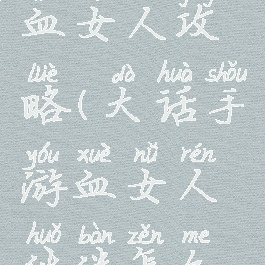 血女人攻
lüè dà huà shǒu
略(大话手
yóu xuè nǚ rén
游血女人
huǒ bàn zěn me
伙伴怎么